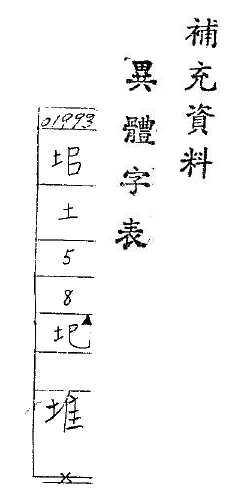 補充資料
異體字表
01993
土
5
8
堆